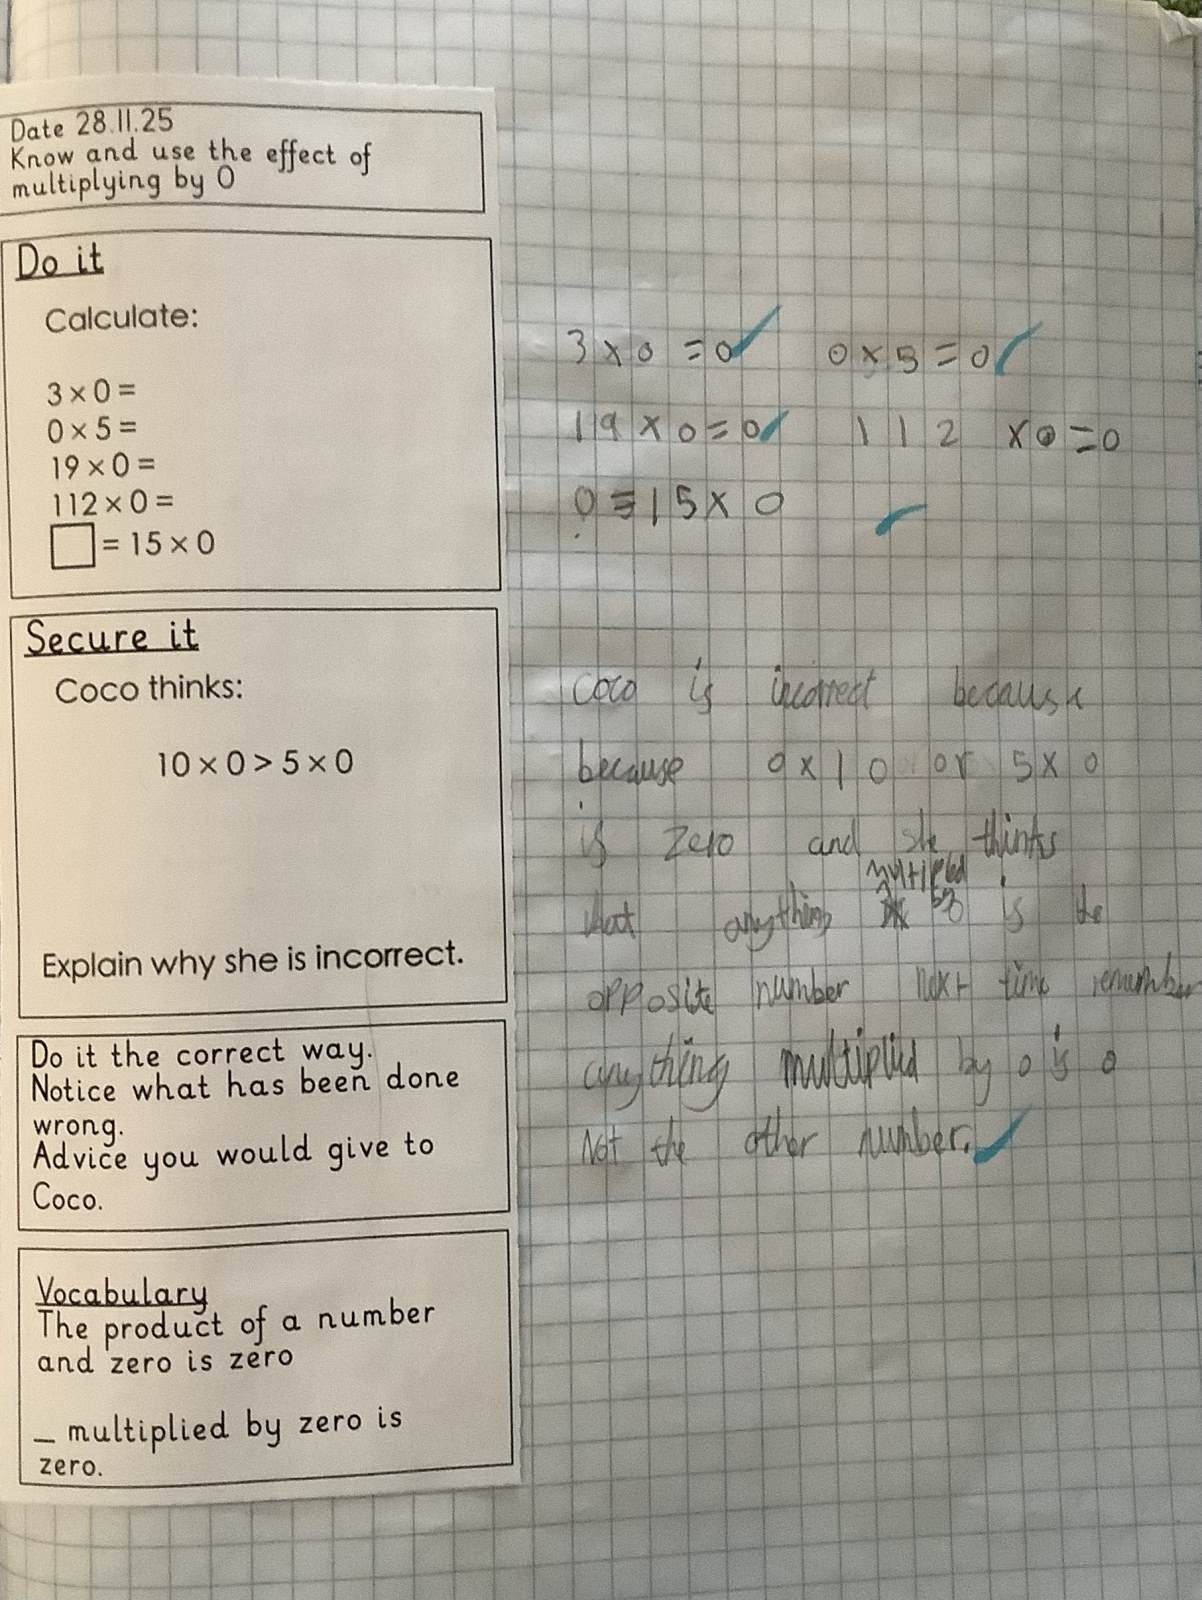 Date 28.11.25
Know and use the effect of
multiplying by 0
Do it
Calculate:
3 × 0 =
0 × 5 =
19 × 0 =
112 × 0 =
= 15 × 0
Secure it
Coco thinks:
10 × 0 > 5 × 0
Explain why she is incorrect.
Do it the correct way.
Notice what has been done
wrong.
Advice you would give to
Coco.
Vocabulary
The product of a number
and zero is zero
_ multiplied by zero is
zero.
3 × 0 = 0 0 × 5 = 0
19 × 0 = 0 112 × 0 = 0
0 = 15 × 0
Coco is incorrect because
because 0 × 10 or 5 × 0
is zero and she thinks
multipled
that anything by 0 is the
opposite number next time remember
anything multiplied by 0 is 0
Not the other number.